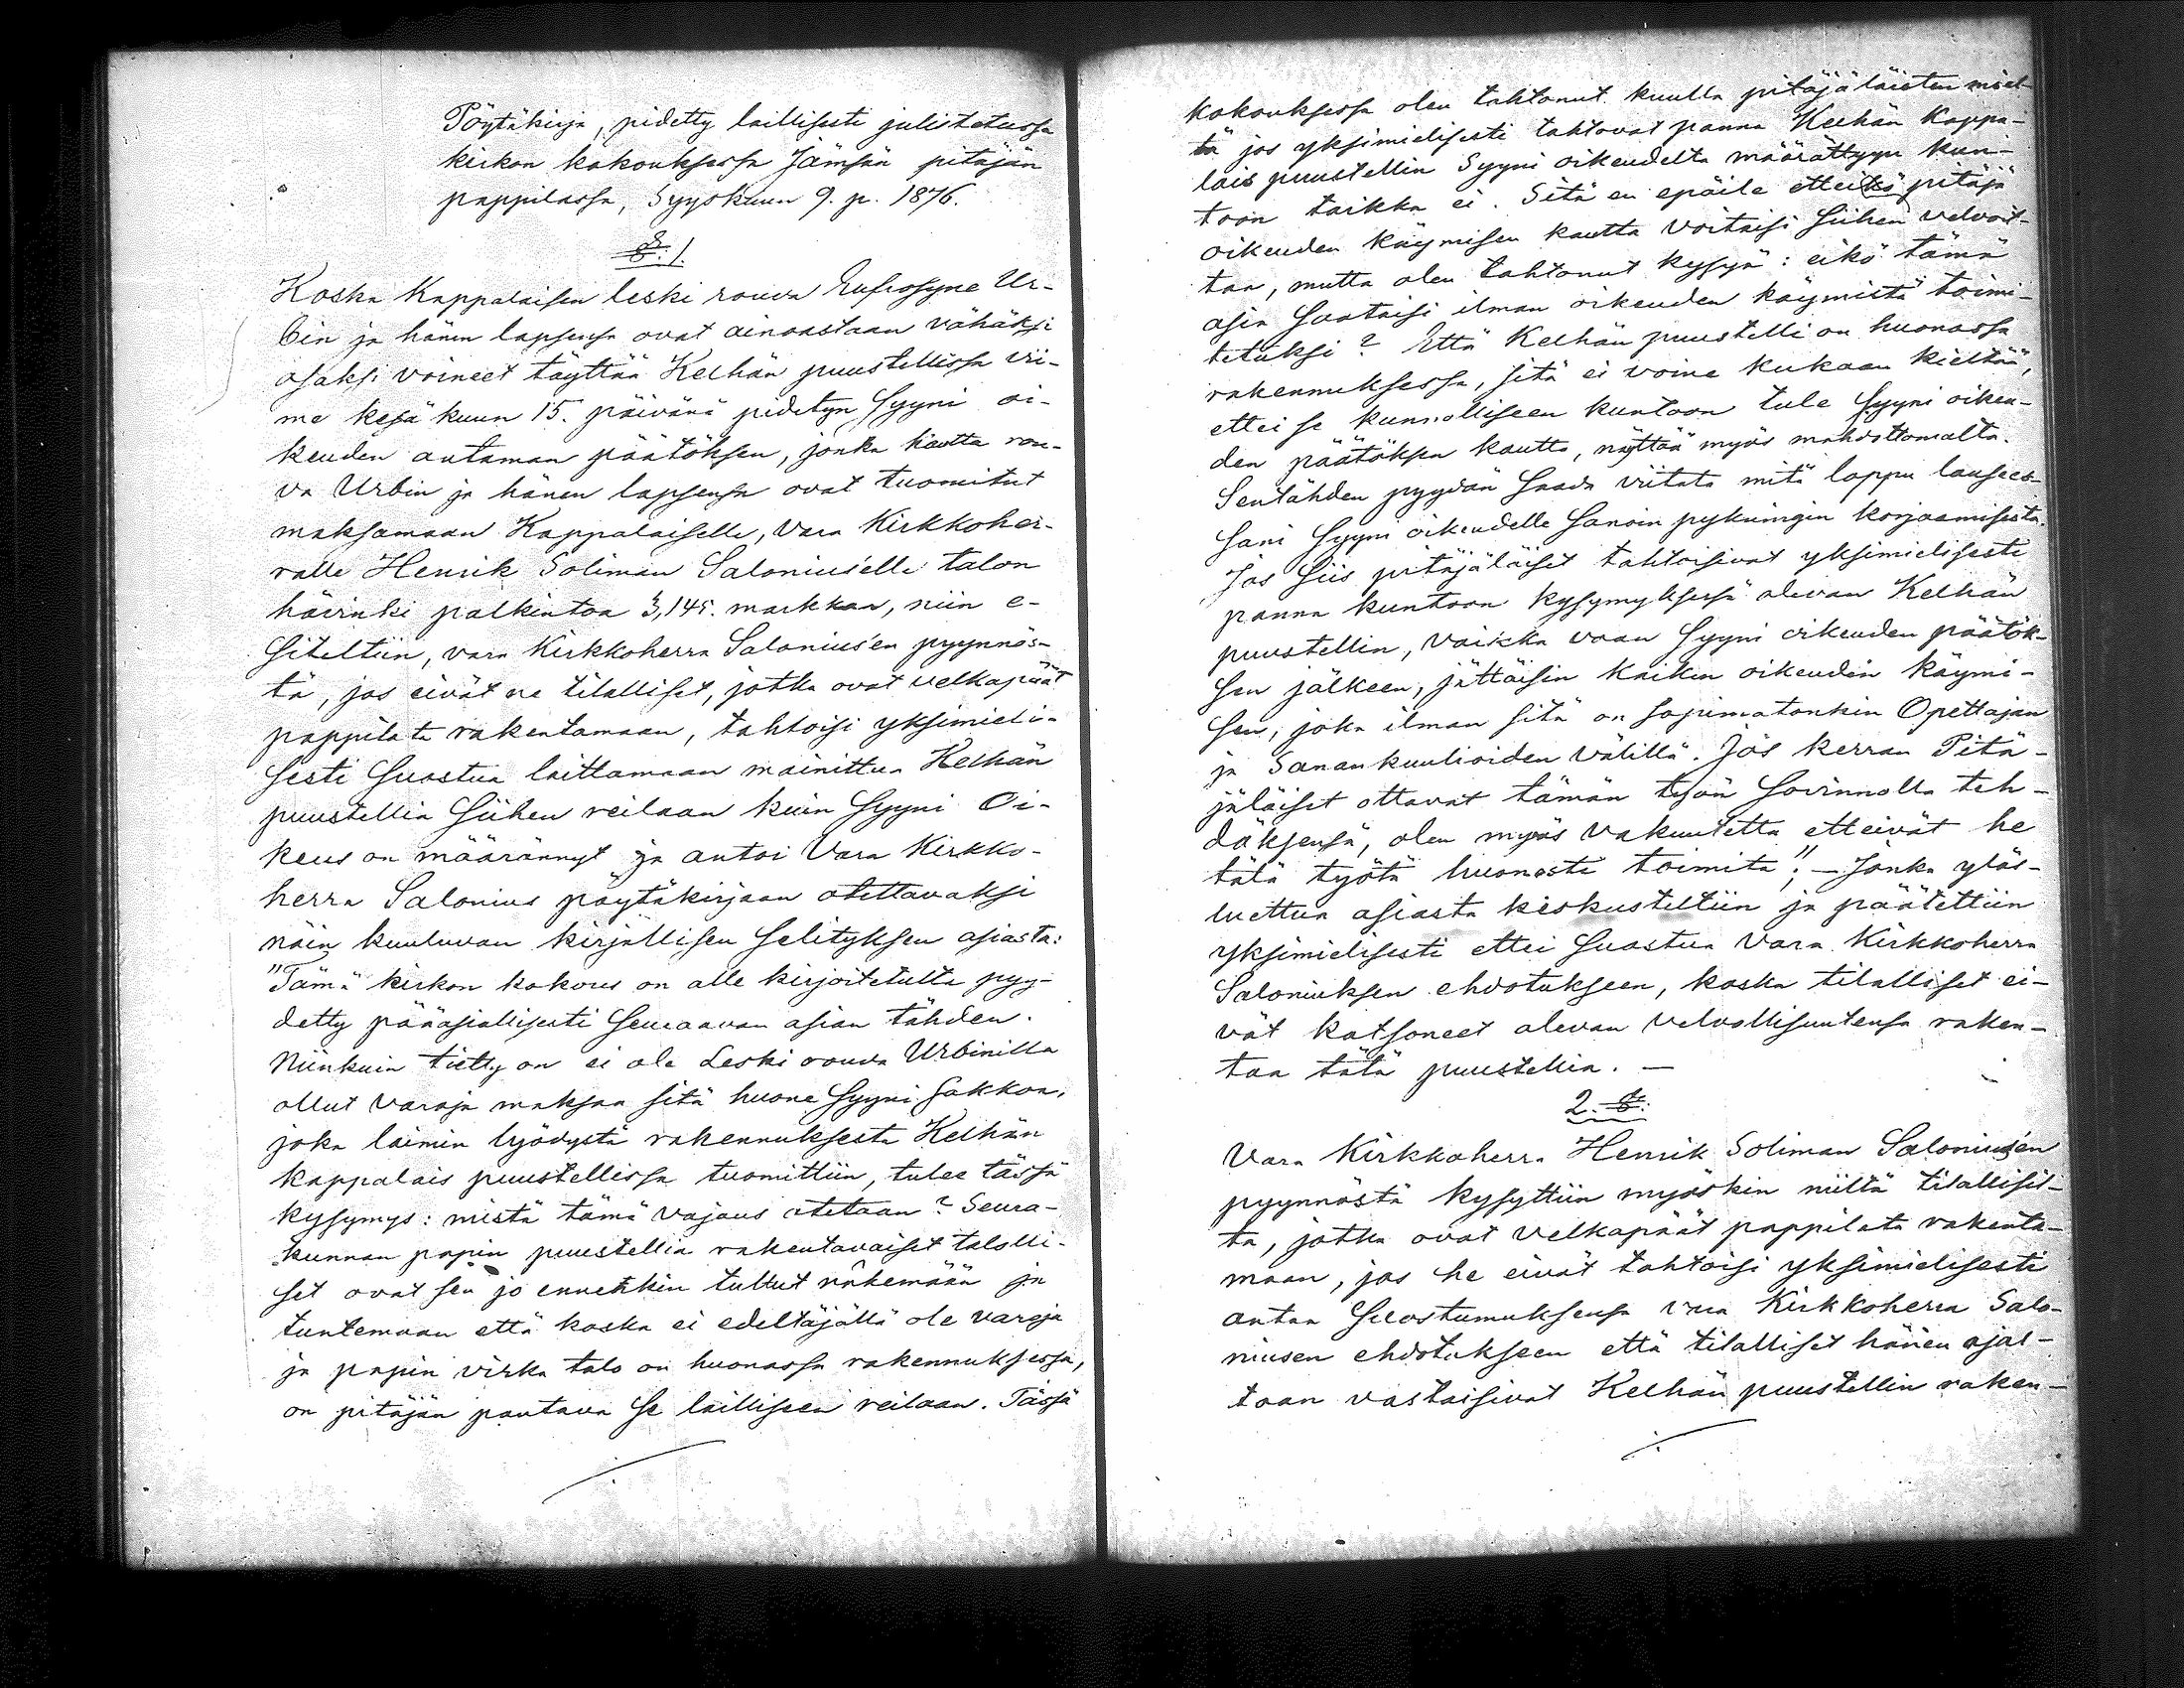 Pöytäkirja, pidetty laillisesti julistetussa
kirkon kokouksessa Jämsän pitäjän
pappilassa, Syyskuun 9. p. 1876.
§. 1.
Koska Kappalaisen leski rouva Eufrosyne Ur-
bin ja hänen lapsensa ovat ainoastaan vähäksi
osaksi voineet täyttää Kelhän puustellissa vii-
me kesäkuun 15. päivänä pidetyn syyni oi-
keuden antaman päätöksen, jonka kautta rou-
va Urbin ja hänen lapsensa ovat tuomitut
maksamaan Kappalaiselle, Vara Kirkkoher-
ralle Henrik Soliman Salonius'elle talon
hävinki palkintoa 3,145. markkaa, niin e-
siteltiin, vara Kirkkoherra Salonius'en pyynnös-
tä, jos eivät ne tilalliset, jotka ovat velkapäät
pappilata rakentamaan, tahtoisi yksimieli-
sesti suostua laittamaan mainittua Kelhän
puustellia siihen reilaan kuin syyni Oi-
keus on määrännyt ja antoi Vara Kirkko-
herra Salonius pöytäkirjaan otettavaksi
näin kuuluvan kirjallisen selityksen asiasta:
"Tämä kirkon kokous on alle kirjoitetulta pyy-
detty pääasiallisesti seuraavan asian tähden.
Niinkuin tietty on ei ole Leski rouva Urbinilla
ollut varoja maksaa sitä huone syyni sakkoa,
joka laimin lyödystä rakennuksesta Kelhän
kappalais puustellissa tuomittiin, tulee tässä
kysymys: mistä tämä vajaus otetaan? Seura-
kunnan papin puustellia rakentavaiset talolli-
set ovat sen jo ennenkin tullut näkemään ja
tuntemaan että koska ei edeltäjällä ole varoja
ja papin virka talo on huonossa rakennuksessa,
on pitäjän pantava se lailliseen reilaan. Tässä
kokouksessa olen tahtonut kuulla pitäjäläisten miel-
tä jos yksimielisesti tahtovat panna Kelhän Kappa-
lais puustellin Syyni oikeudelta määrättyyn kun-
toon taikka ei. Sitä en epäile etteikö pitäjä
oikeuden käymisen kautta voitaisi siihen velvoit-
taa, mutta olen tahtonut kysyä: eikö tämä
asia saataisi ilman oikeuden käymistä toimi-
tetuksi? Että Kelhän puustelli on huonossa
rakennuksessa, sitä ei voine kukaan kieltää,
ettei se kunnolliseen kuntoon tule syyni oikeu-
den päätöksen kautta, näyttää myös mahdottomalta.
Sentähden pyydän saada viitata mitä loppu lausees-
sani syyni oikeudelle sanoin pykningin korjaamisesta.
Jos siis pitäjäläiset tahtoisivat yksimielisesti
panna kuntoon kysymyksessä olevan Kelhän
puustellin, vaikka vaan syyni oikeuden päätök-
sen jälkeen, jättäisin kaiken oikeuden käymi-
sen, joka ilman sitä on sopimatonkin Opettajan
ja Sanankuulioiden välillä. Jos kerran Pitä-
jäläiset ottavat tämän työn sovinnolla teh-
däksensä, olen myös vakuutettu etteivät he
tätä työtä huonosti toimita"; — Jonka ylös-
luettua asiasta keskusteltiin ja päätettiin
yksimielisesti ettei suostua Vara Kirkkoherra
Saloniuksen ehdotukseen, koska tilalliset ei-
vät katsoneet olevan velvollisuutensa raken-
taa tätä puustellia. —
2. §.
Vara Kirkkoherra Henrik Soliman Salonius'en
pyynnöstä kysyttiin myöskin niiltä tilallisil-
ta, jotka ovat velkapäät pappilata rakenta-
maan, jos he eivät tahtoisi yksimielisesti
antaa suostumuksensa vara Kirkkoherra Salo-
niusen ehdotukseen että tilalliset hänen ajal-
taan vastaisivat Kelhän puustellin raken-